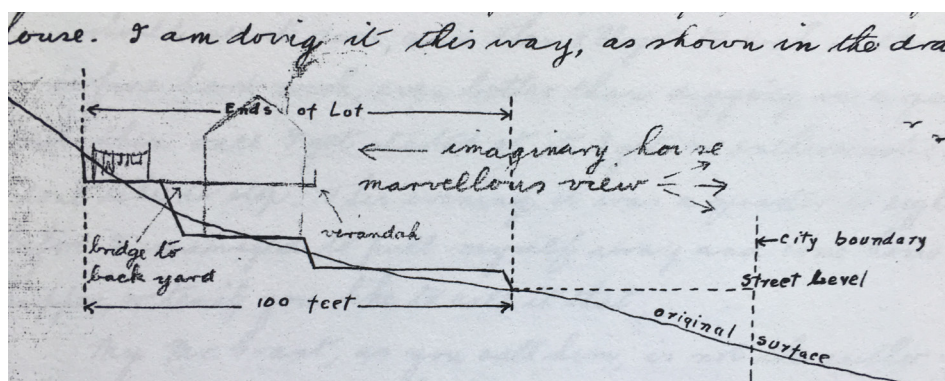 house. I am doing it this way, as shown in the dra
Ends of Lot
imaginary house
marvellous view
verandah
bridge to
back yard
city boundary
Street Level
100 feet
original surface